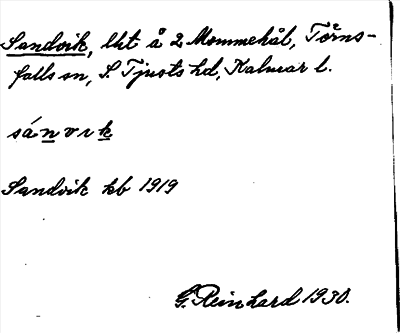 Sandvik, lht å 2 Mommehål, Törns-
falls sn, S. Tjusts hd, Kalmar l.
sánvik
Sandvik kb 1919
G. Reinhard 1930.